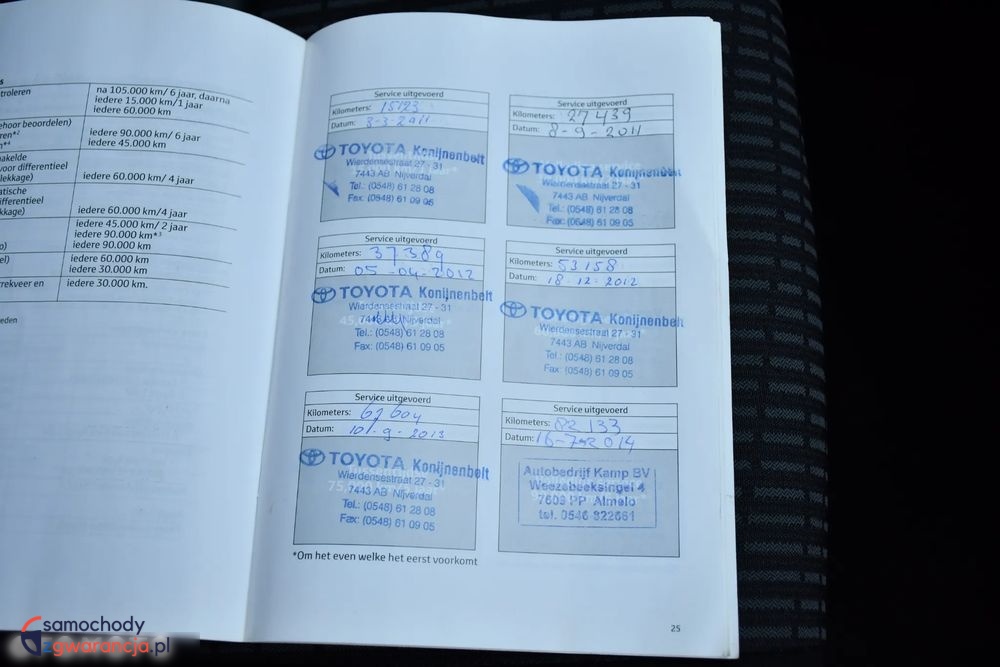 s
troleren
na 105.000 km/ 6 jaar, daarna
iedere 15.000 km/1 jaar
iedere 60.000 km
ehoor beoordelen)
ren*²
iedere 90.000 km/ 6 jaar
iedere 45.000 km
akelde
voor differentieel
lekkage)
iedere 60.000 km/ 4 jaar
atische
differentieel
kkage)
iedere 60.000 km/4 jaar
iedere 45.000 km/ 2 jaar
iedere 90.000 km*³
iedere 90.000 km
o)
el)
iedere 60.000 km
iedere 30.000 km
rrekveer en
iedere 30.000 km.
eden
Service uitgevoerd
Kilometers: 15123
Datum: 8-3-2011
TOYOTA Konijnenbelt
Wierdensestraat 27 - 31
7443 AB Nijverdal
Tel.: (0548) 61 28 08
Fax: (0548) 61 09 05
Service uitgevoerd
Kilometers: 27439
Datum: 8-9-2011
TOYOTA Konijnenbelt
Wierdensestraat 27 - 31
7443 AB Nijverdal
Tel.: (0548) 61 28 08
Fax: (0548) 61 09 05
Service uitgevoerd
Kilometers: 37389
Datum: 05-04-2012
TOYOTA Konijnenbelt
Wierdensestraat 27 - 31
7443 AB Nijverdal
Tel.: (0548) 61 28 08
Fax: (0548) 61 09 05
Service uitgevoerd
Kilometers: 53158
Datum: 18-12-2012
TOYOTA Konijnenbelt
Wierdensestraat 27 - 31
7443 AB Nijverdal
Tel.: (0548) 61 28 08
Fax: (0548) 61 09 05
Service uitgevoerd
Kilometers:
Datum:
TOYOTA Konijnenbelt
Wierdensestraat 27 - 31
7443 AB Nijverdal
Tel.: (0548) 61 28 08
Fax: (0548) 61 09 05
Service uitgevoerd
Kilometers: 82133
Datum:
Autobedrijf Kamp BV
Weezebeeksingel 4
7609 PP Almelo
tel. 0546 822661
*Om het even welke het eerst voorkomt
25
samochody
zgwarancja.pl